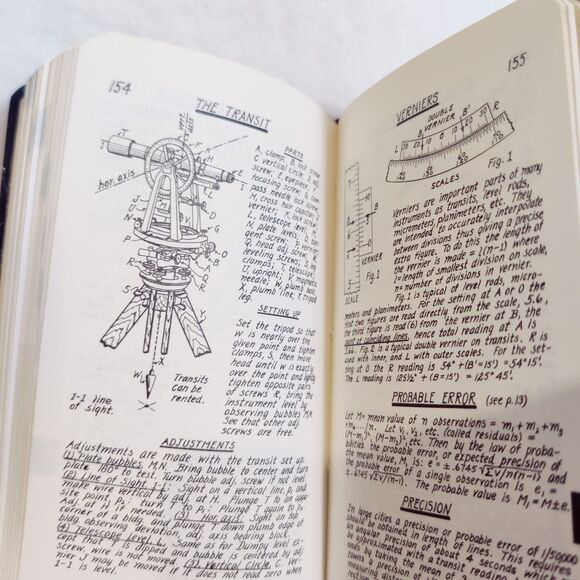 154
THE TRANSIT
vert. axis
hor. axis
1-1 line
of sight.
Transits
can be
rented.
PARTS
A, clamp; B, tang. screw
C, vertical circle; D, adj.
screw; E, eyepiece; F,
focusing screw; G, com-
pass needle lock screw
H, cross hair capstan; J,
vernier; K, lock screw
L, telescope level;
N, plate levels; O,
gent screw; P,
Q, head adj. screw;
leveling screws; S, leg
clamps; T, telescope
U, upright; V, magnetic
needle; W, plumb bob;
X, plumb line; Y, tripod
leg.
SETTING UP
Set the tripod so that
W is nearly over the
given point and tighten
clamps, S, then move
head until W is exactly
over the point and lightly
tighten opposite pairs
of screws R, bring the
instrument level by
observing bubbles M,N.
See that other adj.
screws are free.
ADJUSTMENTS
Adjustments are made with the transit set up.
(1) Plate Bubbles, M,N. Bring bubble to center and turn
plate 180° to test. Turn bubble adj. screw if not level.
(2) Line of Sight, 1-1. Sight on a vertical line, p, and
make cross vertical by adj. at H. Plunge T to oppo-
site point, p, turn T to p; Plunge T again to p.
Adj. at H if needed. (3) Hor. axis. Sight on top
corner of bldg. and plunge T down plumb edge of
bldg. observing deviation, adj. axis bearing block.
(4) Telescope Level, L. Same as for Dumpy level ex-
cept that T is dipped and bubble is centered by adj.
screw, wire is not moved. (5) Vertical Circle, C. Ver-
nier J may be moved if it does not read zero when
1-1 is level.
155
VERNIERS
DOUBLE
VERNIER
SCALES
Fig. 1
VERNIER
SCALE
Fig. 1
Verniers are important parts of many
instruments as transits, level rods,
micrometers, planimeters, etc. They
are intended to accurately interpolate
between divisions thus giving a precise
extra figure. To do this the length of
the vernier is made = l(n-1) where
l = length of smallest division on scale,
n = number of divisions in vernier.
Fig. 1 is typical of level rods, micro-
meters and planimeters. For the setting at A or 0 the
first two figures are read directly from the scale, 5.6,
the third figure is read (6) from the vernier at B, the
point of coinciding lines, hence total reading at A is
5.66. Fig. 2 is a typical double vernier on transits. R is
used with inner, and L with outer scales. For the set-
ting at 0 the R reading is 54° + (B' = 15') = 54° 15'.
The L reading is 125½° + (B = 15') = 125° 45'.
PROBABLE ERROR (see p.13)
Let M = mean value of n observations = m₁ + m₂ + m₃
+ m₄ ... /n. Let V₁, V₂, etc. (called residuals) =
(M-m₁)², (M-m₂)², etc. Then by the law of proba-
bilities the probable error, or expected precision of
the mean value, M, is: e = ± .6745 √ΣV/n(n-1) and
the probable error of a single observation is e₁ =
± .6745 √ΣV/(n-1). The probable value is M₁ = M ± e.
PRECISION
In large cities a precision or probable error of 1/50000
should be obtained in length of lines. This requires
an angular precision of about 4 seconds which is